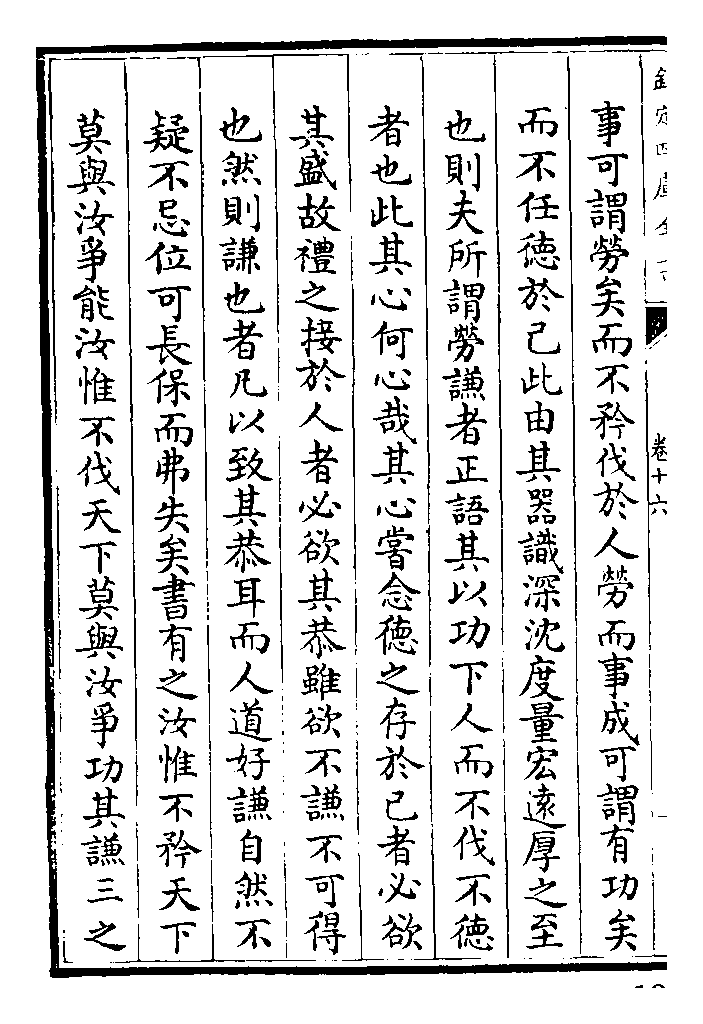 欽定四庫全書
卷十六
事可謂勞矣而不矜伐於人勞而事成可謂有功矣
而不任德於己此由其器識深沈度量宏遠厚之至
也則夫所謂勞謙者正語其以功下人而不伐不德
者也此其心何心哉其心嘗念德之存於已者必欲
其盛故禮之接於人者必欲其恭雖欲不謙不可得
也然則謙也者凡以致其恭耳而人道好謙自然不
疑不忌位可長保而弗失矣書有之汝惟不矜天下
莫與汝爭能汝惟不伐天下莫與汝爭功其謙三之